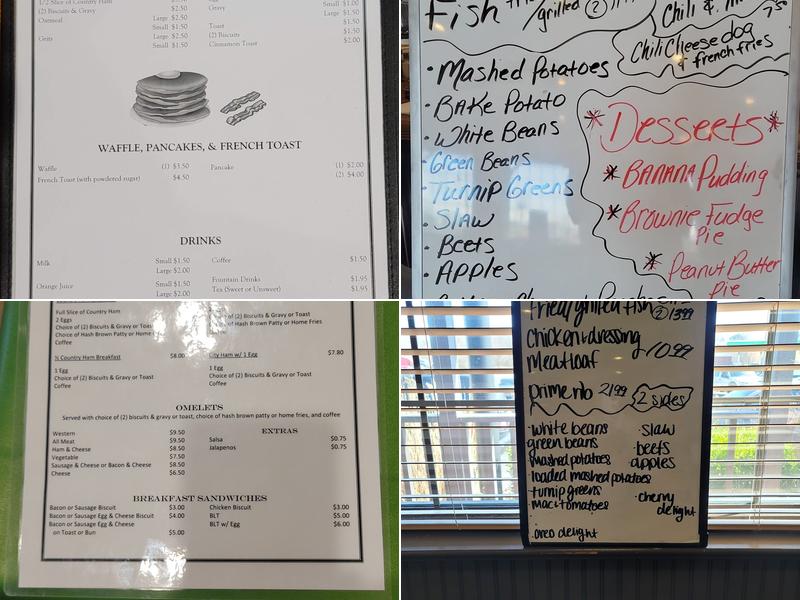 1/2 Slice of Country Ham
(2) Biscuits & Gravy $2.50
Oatmeal Large $2.50
Small $1.50
Grits Large $2.50
Small $1.50
Gravy Small $1.00
Large $1.50
Toast $1.50
(2) Biscuits $1.50
Cinnamon Toast $2.00
WAFFLE, PANCAKES, & FRENCH TOAST
Waffle (1) $3.50 Pancake (1) $2.00
French Toast (with powdered sugar) $4.50 (2) $4.00
DRINKS
Milk Small $1.50 Coffee $1.50
Large $2.00
Fountain Drinks $1.95
Orange Juice Small $1.50 Tea (Sweet or Unsweet) $1.95
Large $2.00
Fish
/grilled (2)
Chili &
Chili Cheese dog 7.50
& french fries
• Mashed Potatoes
• BAKe Potato
• White Beans
• Green Beans
• Turnip Greens
• SlAW
• Beets
• APPles
* Desserts *
* BANANA Pudding
* Brownie Fudge
Pie
* Peanut Butter
Pie
Full Slice of Country Ham
2 Eggs
Choice of (2) Biscuits & Gravy or Toast
Choice of Hash Brown Patty or Home
Coffee
Choice of (2) Biscuits & Gravy or Toast
Choice of Hash Brown Patty or Home Fries
Coffee
½ Country Ham Breakfast $8.00
1 Egg
Choice of (2) Biscuits & Gravy or Toast
Coffee
City Ham w/ 1 Egg $7.80
1 Egg
Choice of (2) Biscuits & Gravy or Toast
Coffee
OMELETS
Served with choice of (2) biscuits & gravy or toast, choice of hash brown patty or home fries, and coffee
Western $9.50
All Meat $9.50
Ham & Cheese $8.50
Vegetable $7.50
Sausage & Cheese or Bacon & Cheese $8.50
Cheese $6.50
EXTRAS
Salsa $0.75
Jalapenos $0.75
BREAKFAST SANDWICHES
Bacon or Sausage Biscuit $3.00
Bacon or Sausage Egg & Cheese Biscuit $4.00
Bacon or Sausage Egg & Cheese
on Toast or Bun $5.00
Chicken Biscuit $3.00
BLT $5.00
BLT w/ Egg $6.00
fried/grilled fish (2) 13.99
chicken & dressing
meatloaf 10.99
prime rib 21.99 2 sides
• white beans
green beans
mashed potatoes
loaded mashed potatoes
turnip greens
• mac & tomatoes
• oreo delight
• slaw
• beets
apples
• cherry
delight